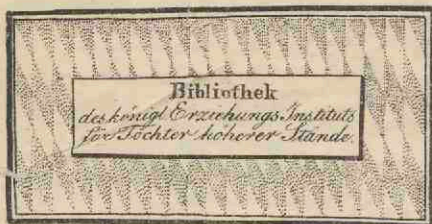 Bibliothek
des königl Erziehungs Instituts
für Töchter höherer Stände.